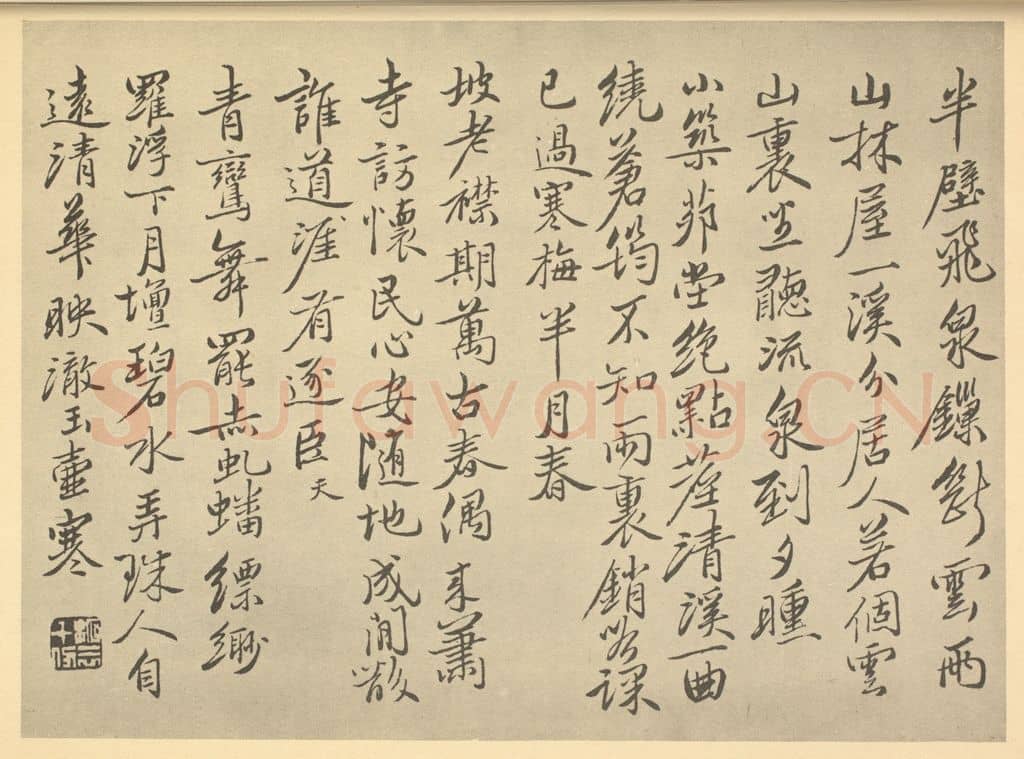 半壁飛泉鏁斷雲兩
山林屋一溪分居人若個雲
山裏坐聽流泉到夕曛
小築茆堂絕點塵清溪一曲
繞蒼筠不知雨裏銷吟課
已過寒梅半月春
坡老襟期萬古春偶來蕭
寺訪懷民心安隨地成閒散
誰道涯有逐臣 天
青鸞舞罷赤虬蟠縹緲
羅浮下月壇碧水弄珠人自
遠清華映澈玉壺寒
Shufawang.CN